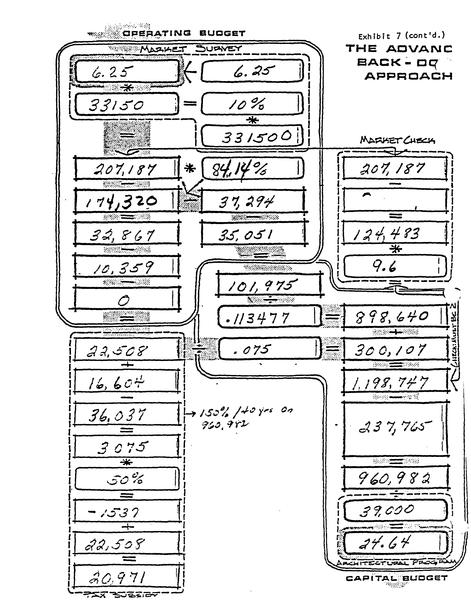 OPERATING BUDGET
Exhibit 7 (cont'd.)
MARKET SURVEY
THE ADVANC
BACK-DO
APPROACH
6.25 6.25
*
33150 = 10%
*
= 331500
MARKET CHECK
207,187 * 84,14% 207,187
174,320 37,294 -
32,867 35,051 124,483
*
10,359 9.6
101,975
0 .113477 = 898,640
+
22,508 ÷ .075 = 300,107
16,604 1,198,747
36,037 → 150% / 40 yrs on
960,982
237,765
3075
*
50% 960,982
-1537 39,000
+
22,508 24.64
ARCHITECTURAL PROGRAM
20,971
CAPITAL BUDGET
TAX SUBSIDY